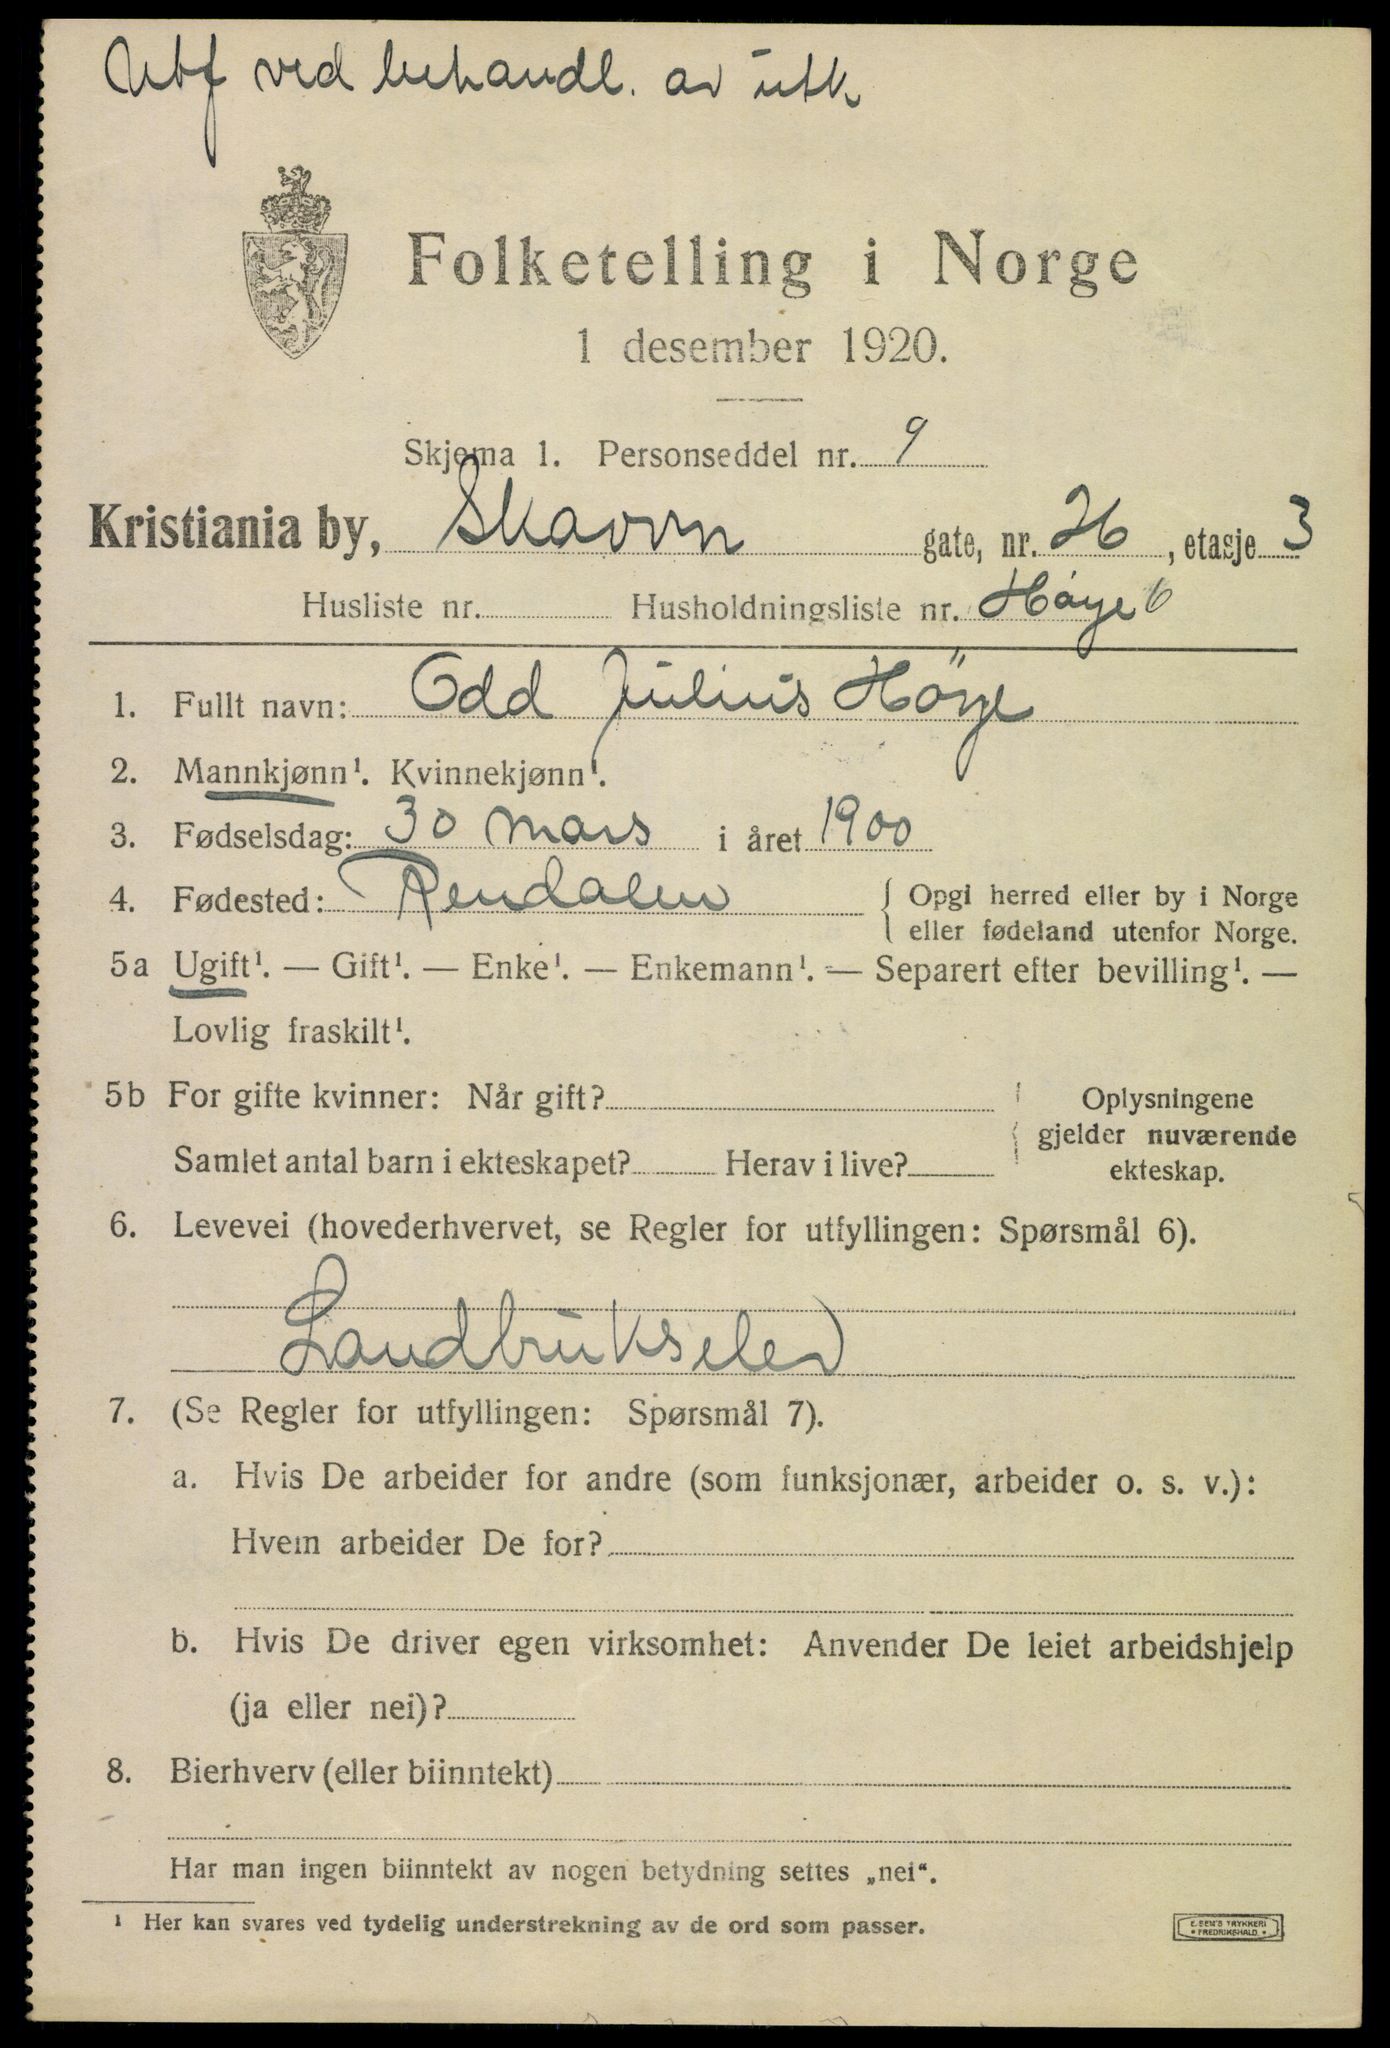 Utf ved behandl. av utk
Folketelling i Norge
1 desember 1920.
Skjema 1. Personseddel nr. 9
Kristiania by, Skovvn gate, nr. 26, etasje 3
Husliste nr. Husholdningsliste nr. Høye 6
1. Fullt navn: Odd Julius Höye
2. Mannkjønn¹. Kvinnekjønn¹.
3. Fødselsdag: 30 mars i året 1900
4. Fødested: Rendalen { Opgi herred eller by i Norge
eller fødeland utenfor Norge.
5a Ugift¹. — Gift¹. — Enke¹. — Enkemann¹. — Separert efter bevilling¹. —
Lovlig fraskilt¹.
5b For gifte kvinner: Når gift? { Oplysningene
gjelder nuværende
Samlet antal barn i ekteskapet? Herav i live? ekteskap.
6. Levevei (hovederhvervet, se Regler for utfyllingen: Spørsmål 6).
Landbrukselev
7. (Se Regler for utfyllingen: Spørsmål 7).
a. Hvis De arbeider for andre (som funksjonær, arbeider o. s. v.):
Hvem arbeider De for?
b. Hvis De driver egen virksomhet: Anvender De leiet arbeidshjelp
(ja eller nei)?
8. Bierhverv (eller biinntekt)
Har man ingen biinntekt av nogen betydning settes „nei“.
¹ Her kan svares ved tydelig understrekning av de ord som passer.
E. SEM'S TRYKKERI
• FREDRIKSHALD •